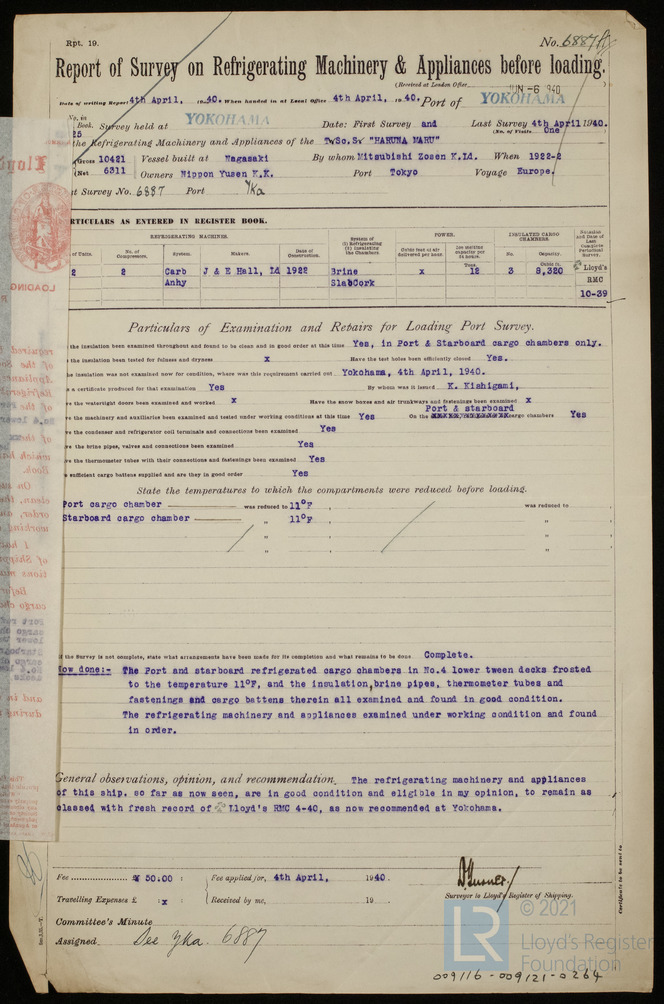 Rpt. 19.
No. 6887
Report of Survey on Refrigerating Machinery & Appliances before loading.
(Received at London Office JUN -6 940 )
Date of writing Report 4th April, 19 40. When handed in at Local Office 4th April, 19 40. Port of YOKOHAMA
No. in Book. Survey held at YOKOHAMA Date: First Survey and Last Survey 4th April 1940.
(No. of Visits One
25 the Refrigerating Machinery and Appliances of the "HARUNA MARU"
Gross 10421 Vessel built at Nagasaki By whom Mitsubishi Zosen K.Ld. When 1922-2
Net 6311 Owners Nippon Yusen K.K. Port Tokyo Voyage Europe.
t Survey No. 6887 Port Yka
RTICULARS AS ENTERED IN REGISTER BOOK.
REFRIGERATING MACHINES. System of (1) Refrigerating (2) Insulating the Chambers POWER. INSULATED CARGO CHAMBERS
of Units. No. of Compressors. System. Makers. Date of Construction. Cubic feet of air delivered per hour. Ice melting capacity per 24 hours. No. Capacity. Notation and Date of Last Complete Periodical Survey.
Tons. Cubic ft.
2 2 Carb J & E Hall, Ld 1922 Brine x 12 3 8,320 Lloyd's
Anhy Slab Cork RMC
10-39
Particulars of Examination and Repairs for Loading Port Survey.
the insulation been examined throughout and found to be clean and in good order at this time Yes, in Port & Starboard cargo chambers only.
the insulation been tested for fulness and dryness x Have the test holes been efficiently closed Yes.
the insulation was not examined now for condition, where was this requirement carried out Yokohama, 4th April, 1940.
a certificate produced for that examination Yes By whom was it issued K. Kishigami,
ve the watertight doors been examined and worked x Have the snow boxes and air trunkways and fastenings been examined x
Port & starboard
ve the machinery and auxiliaries been examined and tested under working conditions at this time Yes On the cargo chambers Yes
ve the condenser and refrigerator coil terminals and connections been examined Yes
ve the brine pipes, valves and connections been examined Yes
ve the thermometer tubes with their connections and fastenings been examined Yes
sufficient cargo battens supplied and are they in good order Yes
State the temperatures to which the compartments were reduced before loading.
Port cargo chamber was reduced to 11°F , was reduced to
Starboard cargo chamber " 11°F "
" "
" "
If the Survey is not complete, state what arrangements have been made for its completion and what remains to be done Complete.
Now done:- The Port and starboard refrigerated cargo chambers in No.4 lower tween decks frosted
to the temperature 11°F, and the insulation, brine pipes, thermometer tubes and
fastenings and cargo battens therein all examined and found in good condition.
The refrigerating machinery and appliances examined under working condition and found
in order.
General observations, opinion, and recommendation. The refrigerating machinery and appliances
of this ship. so far as now seen, are in good condition and eligible in my opinion, to remain as
classed with fresh record of Lloyd's RMC 4-40, as now recommended at Yokohama.
Fee ¥ 50:00 : Fee applied for, 4th April, 1940.
Travelling Expenses £ : x : Received by me, 19
Surveyor to Lloyd's Register of Shipping.
Certificate to be sent to
Committee's Minute
Assigned See Yka. 6887
LR © 2021
Lloyd's Register
Foundation
009116-009121-0264